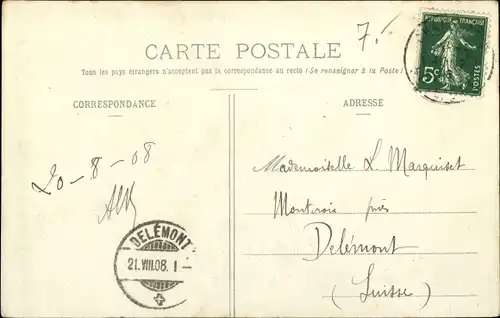 7.-
RÉPUBLIQUE FRANÇAISE
5c
POSTES
CARTE POSTALE
Tous les pays étrangers n'acceptent pas la correspondance au recto (Se renseigner à la Poste)
CORRESPONDANCE
ADRESSE
20-8-08
DELÉMONT
21.VIII.08. 1-
Mademoiselle L Marquiset
Montcroix près
Delémont
(Suisse)